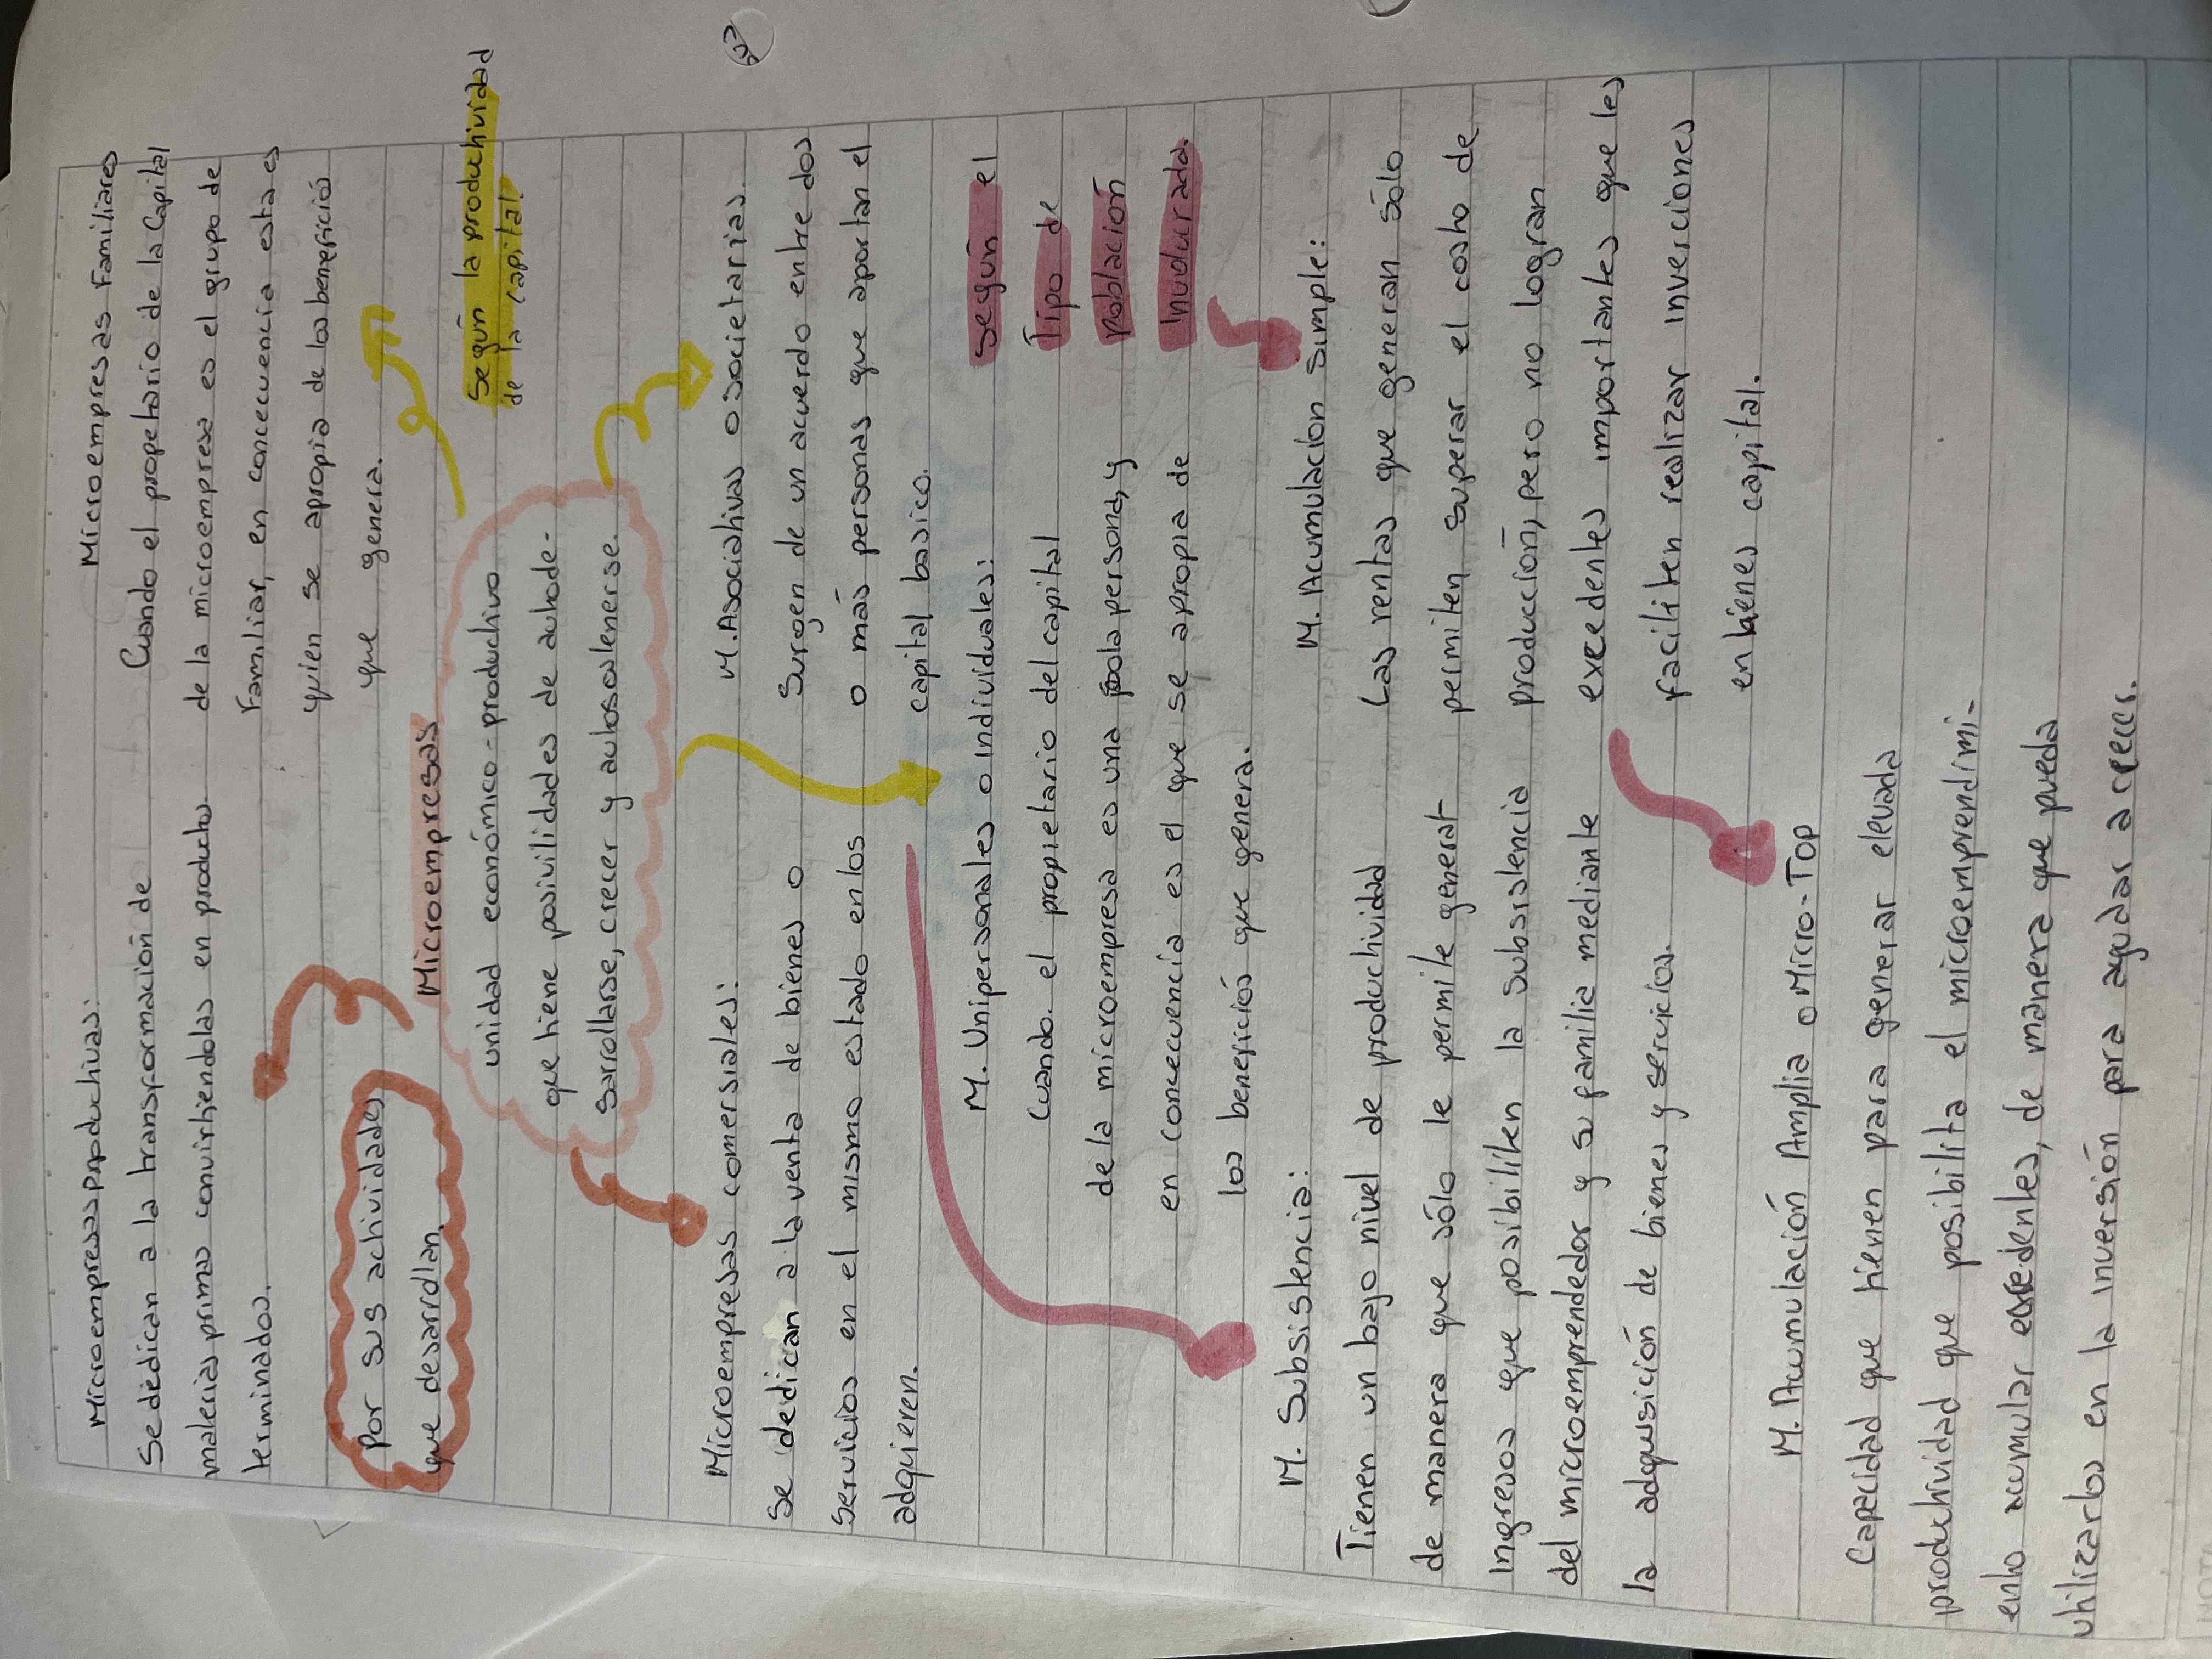 Microempresas productivas:
Se dedican a la transformación de
materias primas convirtiendolas en productos
terminados.
Microempresas Familiares
Cuando el propetario de la Capital
de la microempresa es el grupo de
Familiar, en concecuencia esta es
quien se apropia de los beneficios
que genera.
Por sus actividades
que desarrollan.
Microempresas
unidad económico-productivo
que tiene posivilidades de autode-
sarrollarse, crecer y autosostenerse.
Según la productividad
de la capital.
Microempresas comersiales:
Se dedican a la venta de bienes o
Servicios en el mismo estado en los
adquieren.
M. Asociativas o societarias.
Surgen de un acuerdo entre dos
o más personas que aportan el
capital basico.
M. Unipersonales o individuales:
Cuando. el propietario del capital
de la microempresa es una sola persona, y
en concecuencia es el que se apropia de
los beneficios que genera.
Según el
Tipo de
población
Involucrada.
M. Subsistencia:
Tienen un bajo nivel de productividad
de manera que sólo le permite generar
ingresos que posibiliten la subsistencia
del microemprendedor y su familia mediante
la adquisición de bienes y servicios.
M. Acumulacion simple:
Las rentas que generan sólo
permiten superar el costo de
producción, pero no logran
excedentes importantes que les
faciliten realizar inverciones
en bienes capital.
M. Acumulación Amplia o Micro-Top
Capacidad que tienen para generar elevada
productividad que posibilita el microemprendimi-
ento acumular excedentes, de manera que pueda
utilizarlos en la inversión para ayudar a crecer.